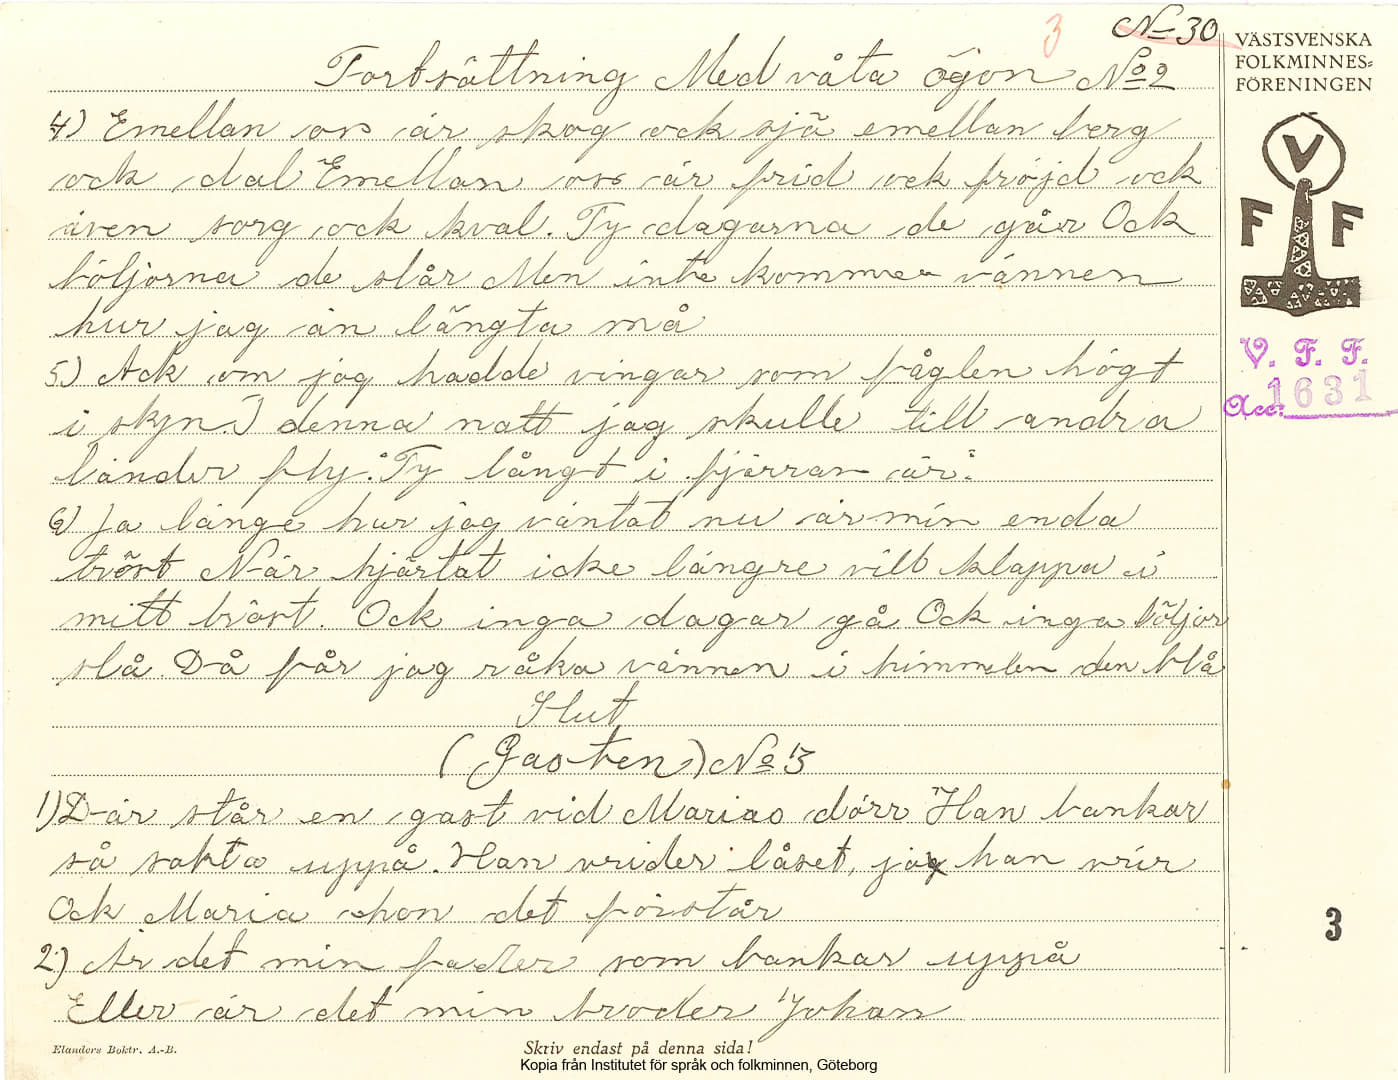 3 No 30
Fortsättning Med våta ögon No 2
4) Emellan oss är skog ock sjö emellan berg
ock dal Emellan oss är frid ock fröjd ock
även sorg ock kval. Ty dagarna de går Ock
böljorna de slår Men inte kommer vännen
hur jag än längta må
5.) Ack om jag hadde vingar som fåglen högt
i skyn. I denna natt jag skulle till andra
länder fly. Ty långt i fjärran är:
6) Ja länge hur jag väntat nu är min enda
tröst När hjärtat icke längre vill klappa i
mitt bröst. Ock inga dagar gå Ock inga böljor
slå Då får jag råka vännen i himmelen den blå
Slut
(Gasten) No 3
1) Där står en gast vid Marias dörr Han bankar
så sakta uppå. Han vrider låset, ja han vrir
Ock Maria hon det förstår
2.) Är det min fader som bankar uppå
Eller är det min broder Johan
VÄSTSVENSKA
FOLKMINNES-
FÖRENINGEN
V
F F
V. F. F.
Acc. 1631
3
Elanders Boktr. A.-B.
Skriv endast på denna sida!
Kopia från Institutet för språk och folkminnen, Göteborg